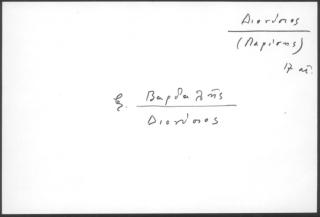 Διονύσιος
(Λαρίσης)
17 αἰ.
ξ. Βαρδαλῆς
Διονύσιος